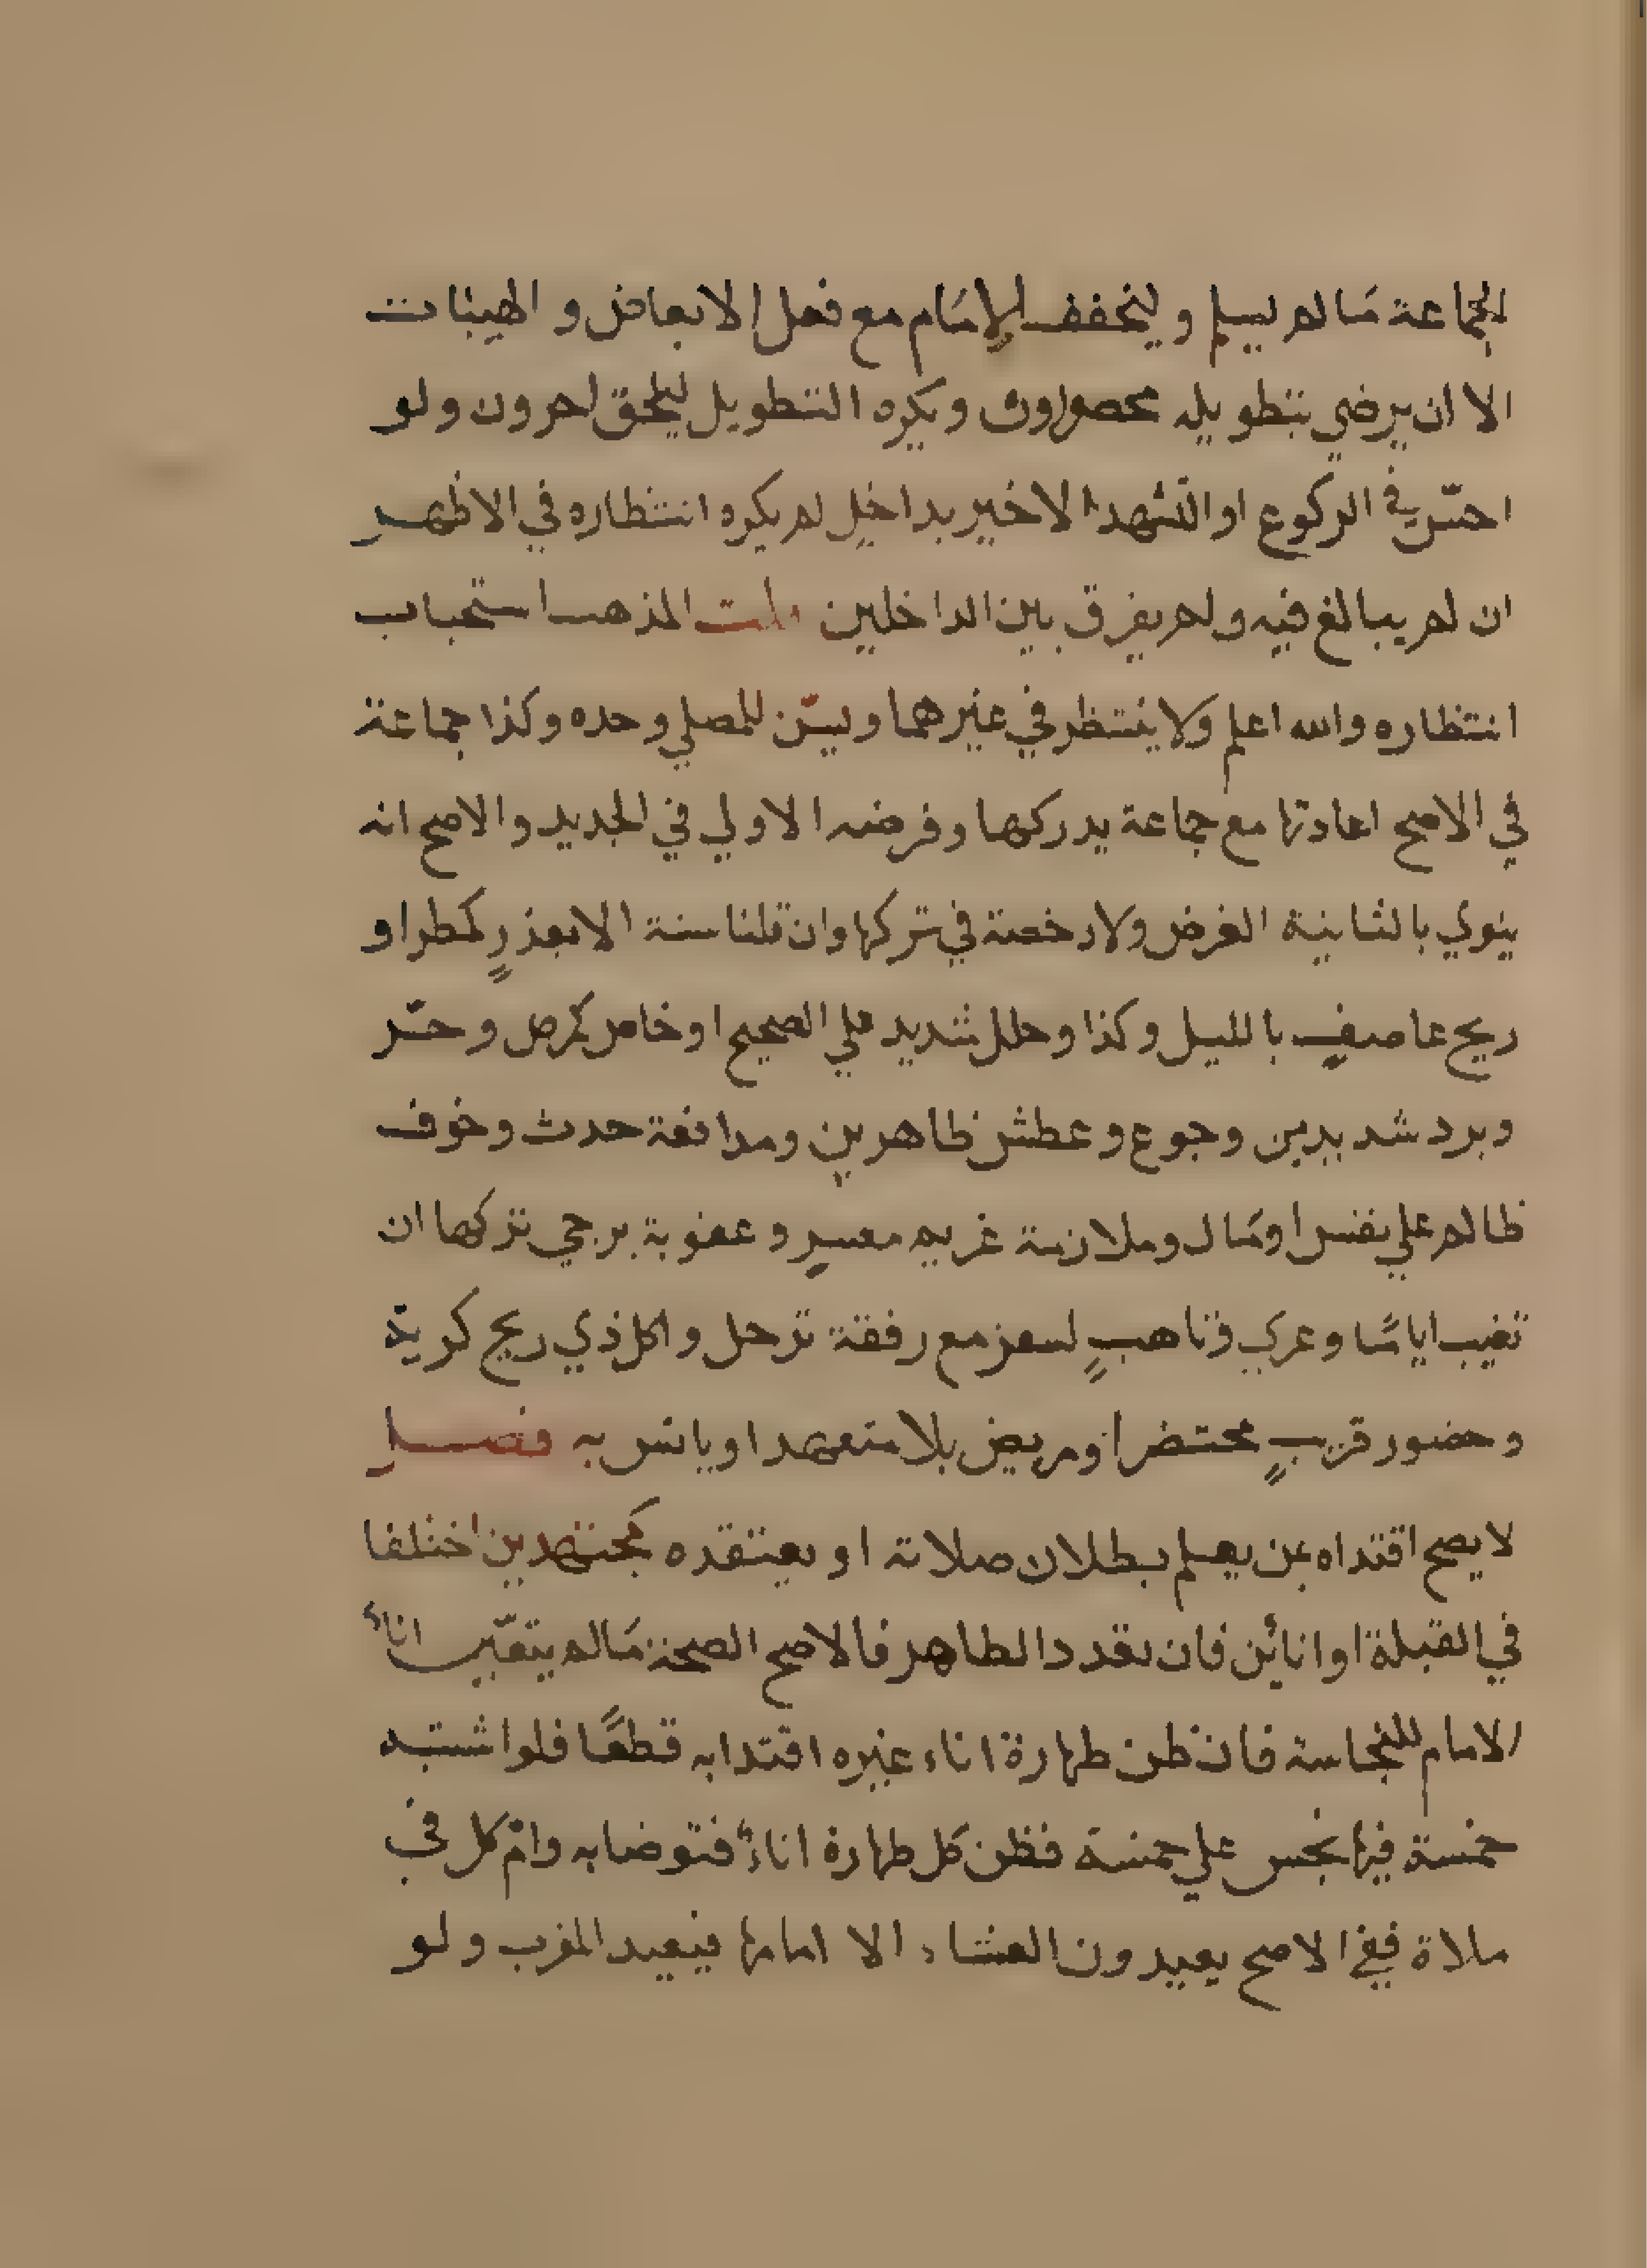 الجماعة مَا لم يسلم وليخفف الإمَام مع فعل الابعاض و الهيئات
الا ان يرضي بتطويله محصورون ويكره التطويل ليلحق اخرون ولو
احسّ في الركوع او التشهد الاخير بداخل لم يكره انتظاره في الاظهر
ان لم يبالغ فيه ولم يفرق بين الداخلين قلت المذهب استحباب
انتظاره والله اعلم ولا ينتظر في غيرهما ويسّن للمصلي وحده وكذا جماعة
في الاصح اعادتها مع جماعة يدركها وفرضه الاولي في الجديد والاصح انه
ينوي بالثانية الفرض ولا رخصة في تركها وان قلنا سنة الا بعذرٍ كمطر او
ريح عاصفٍ بالليل وكذا وحل شديد علي الصحيح او خاص كمرض وحّر
وبرد شديدين وجوع وعطش ظاهرين ومدافعة حدث وخوف
ظالم علي نفس او مَال وملازمة غريم معسرٍ و عقوبة يرجي تركها ان
تغيب اياماً وعري وتاهبٍ لسفر مع رفقة ترحل واكل ذي ريح كريه
وحضور قريبٍ محتضر او مريض بلا متعهد او يانس به فصل
لا يصح اقتداه بمن يعلم بطلان صلاته او يعتقده كمجتهدين اختلفا
في القبلة او انائين فان تعدد الطاهر فالاصح الصحة مَا لم يتعيّن اناء
الامام للنجاسة فان ظن طهارة اناء غيره اقتدا به قطعًا فلو اشتبه
خمسة فيها نجس علي خمسة فظن كل طهارة اناءٍ فتوضا به وامّ كل في
صلاة ففي الاصح يعيدون العشاء الا امامها فيعيد المغرب ولو